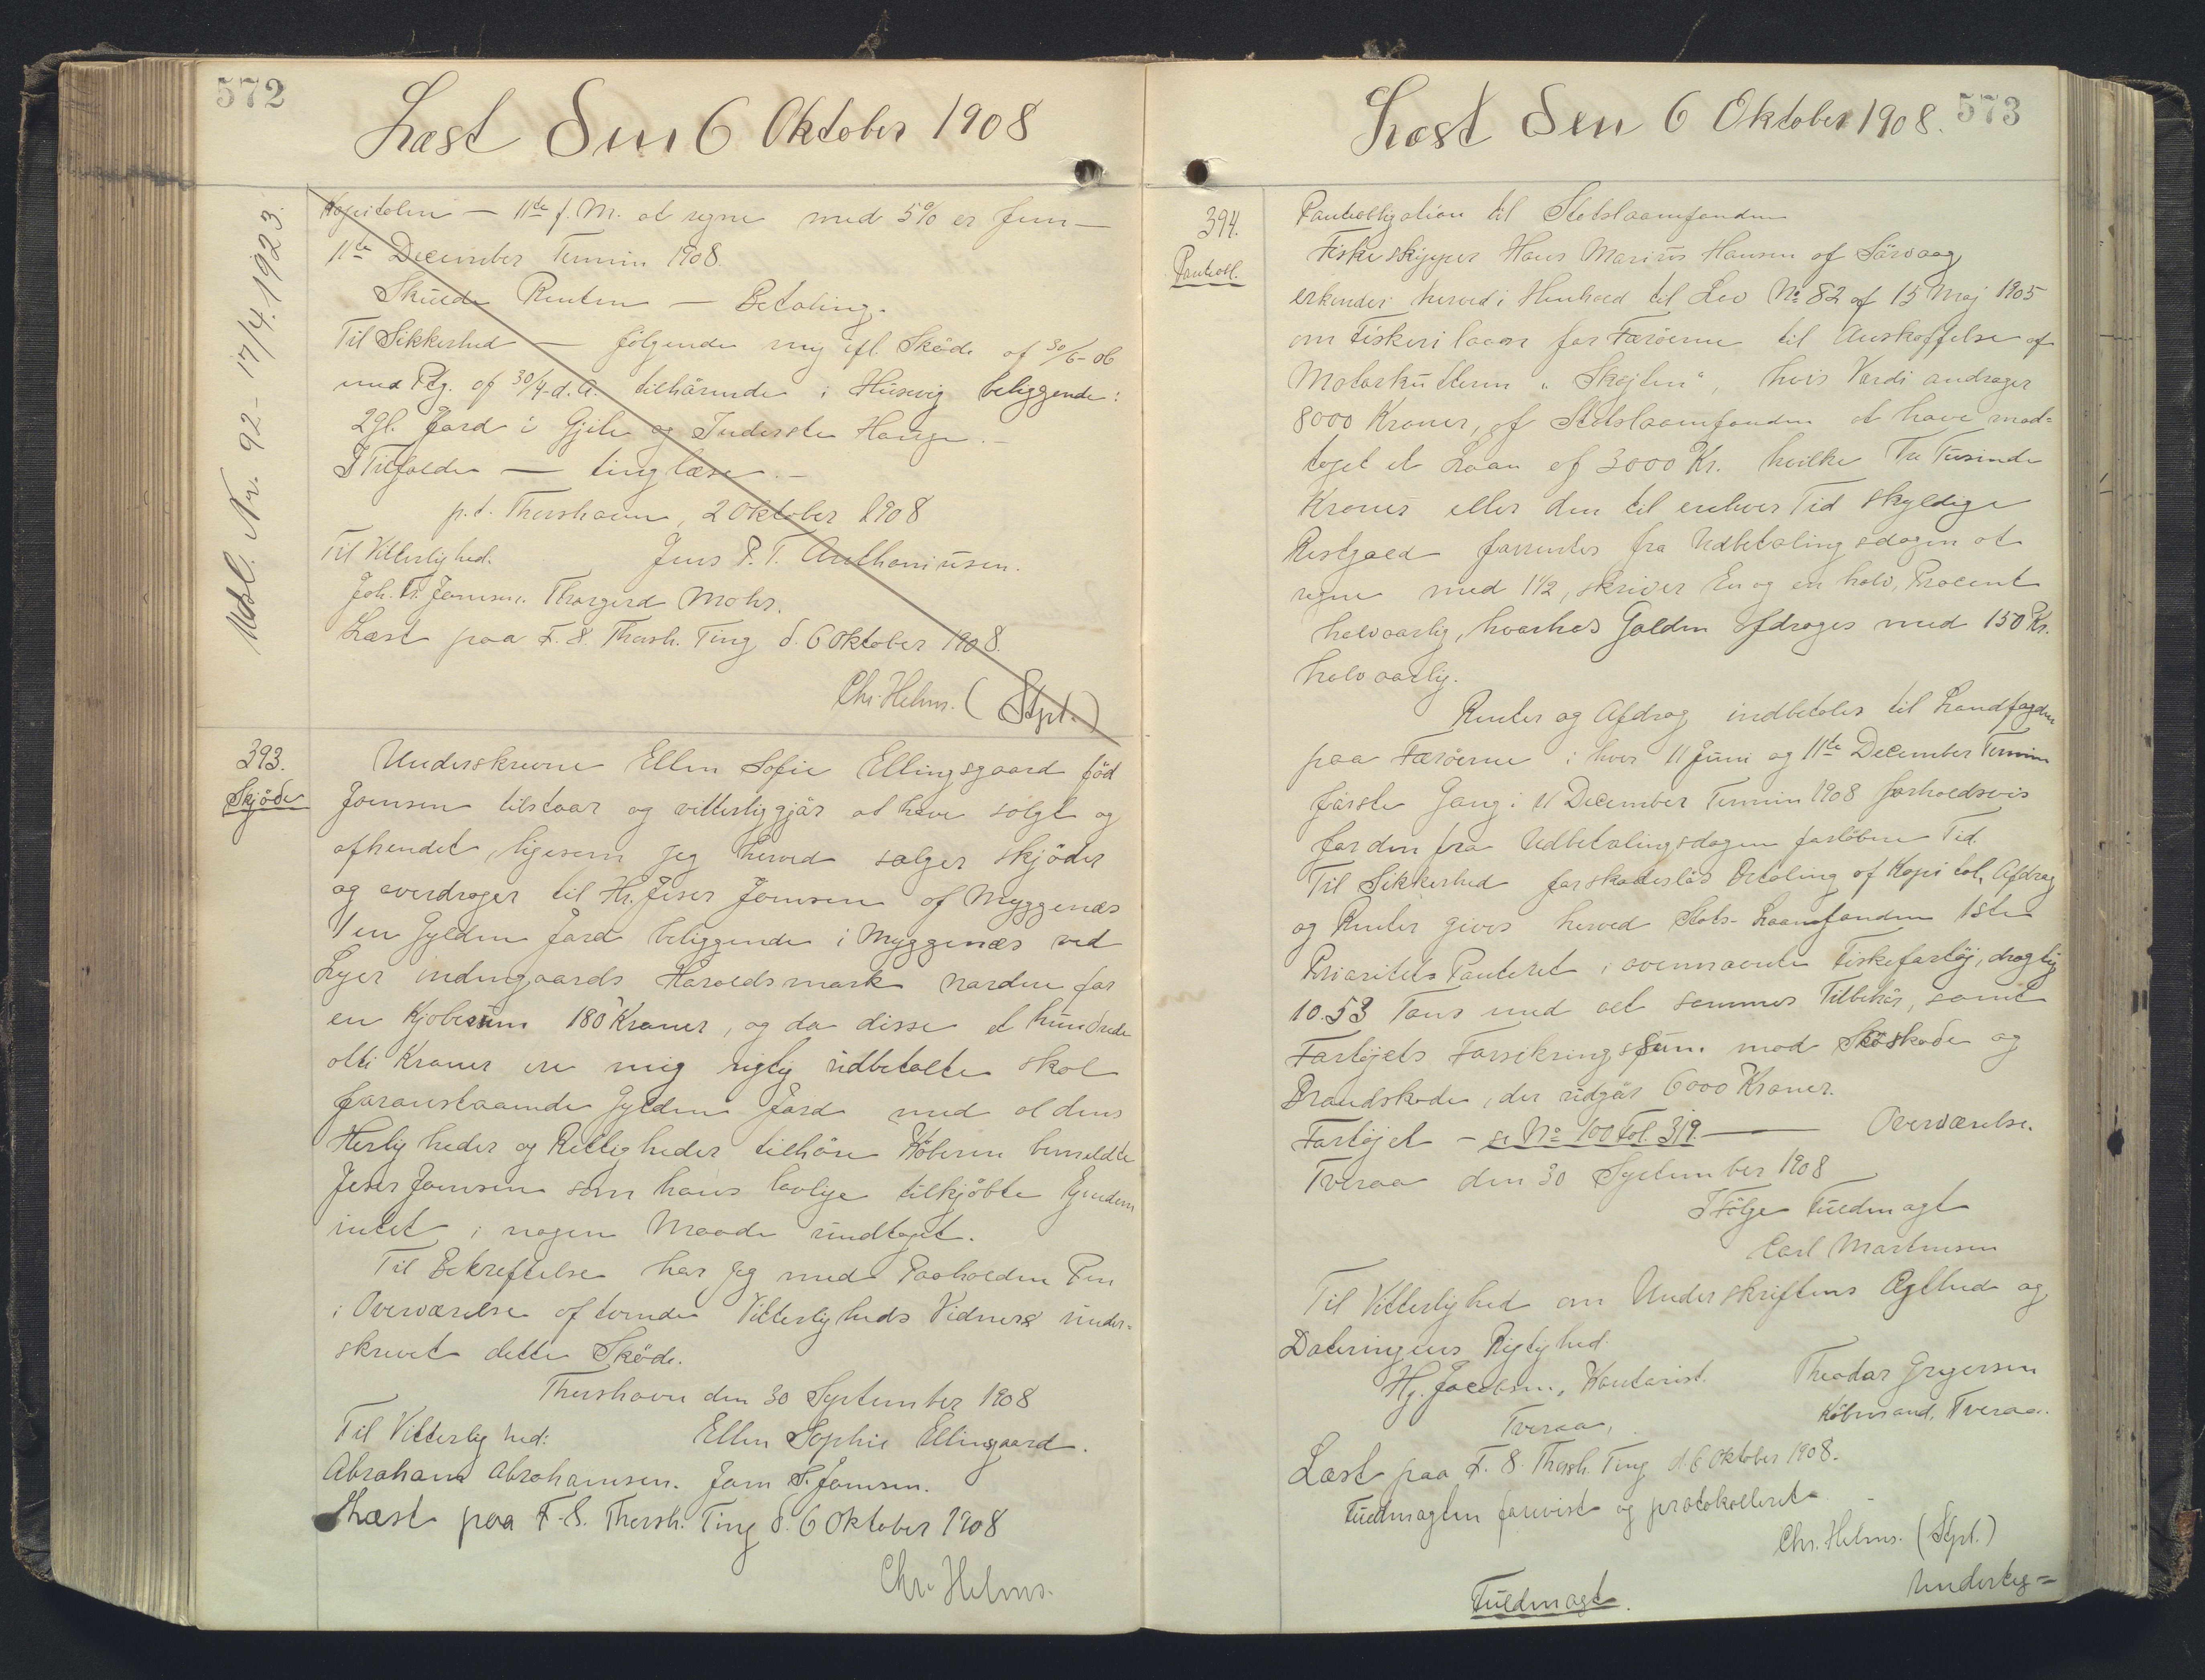 572
Læst Den 6 Oktober 1908
Udsl. Nr. 92 - 17/4. 1923.
Kapitalen — 11te f. M. at regne med 5% er Juni —
11te December Termin 1908.
Skulde Renten — Betaling.
Til Sikkerhed — følgende mig ifl. Sköde af 30/6-06
med Ptg. af 30/4-d.A. tilhörende i Húsevig beliggende:
2 gl. Jord i Gjile og Inderste Hauge. —
I Tilfælde — tinglæse. —
p.t. Thorshavn, 2 Oktober 1908
Til Vitterlighed. Jens P. T. Anthoniúsen.
Joh. Fr. Joensen. Thorgerd Mohr.
Læst paa F. S. Thorsh. Ting d. 6 Oktober 1908.
Chr. Helms. (Stpl.)
393.
Skjöde
Underskrevne Ellen Sofie Ellingsgaard föd
Joensen tilstaar og vitterliggjör at have solgt og
afhendet, ligesom jeg herved sælger skjöder
og overdrager til Hr. Jeser Joensen af Myggenæs
1 en Gylden Jord beliggende i Myggenæs ved
Lyer indengaards Haroldsmark norden for
en Kjöbesúm 180 Kroner, og da disse et húndrede
otti Kroner ere mig rigtig údbetalte skal
foranstaaende Gylden Jord med al dens
Herligheder og Rettigheder tilhöre Köberen bemeldte
Jeser Joensen som hans lovlige tilkjöbte Ejendom
intet i nogen Maade úndtaget.
Til Bekreftelse har jeg med Paaholden Pen
i Overværelse af tvende Vitterligheds Vidner únder-
skrevet dette Sköde.
Thorshavn den 30 September 1908
Til Vitterlighed: Ellen Sophie Ellingsgaard.
Abraham Abrahamsen. Joen S. Joensen.
Læst paa F. S. Thorsh. Ting d. 6 Oktober 1908
Chr. Helms.
573
Læst Den 6 Oktober 1908.
394.
Pantobl.
Pantobligation til Statslaanfonden
Fiskeskipper Hans Mariús Hansen af Sörvaag
erkender herved i Henhold til Lov No 82 af 15 Maj 1905
om Fiskerilaan for Færöerne til Anskaffelse af
Motorkútteren "Skejten", hvis Værdi andrager
8000 Kroner, af Statslaanfonden at have mod-
taget et Laan af 3000 Kr. hvilke Tre Tusinde
Kroner eller den til enhver Tid skyldige
Restgæld forrentes fra Udbetalingsdagen at
regne med 1 1/2, skriver En og en halv, Procent
halvaarlig, hvorhos Gælden afdrages med 150 Kr.
halvaarlig.
Renter og Afdrag indbetales til Landfogden
paa Færöerne i hver 11 Júni og 11te December Termin
förste Gang i 11 December Termin 1908 forholdsvis
for den fra Udbetalingsdagen forlöbne Tid.
Til Sikkerhed for skadeslös Betaling af Kapital, Afdrag
og Renter gives herved Stats-Laanefonden 1ste
Prioritets Panteret i ovennævnte Fiskefartöj, drægtig
10.53 Tons med alt sammes Tilbehör, samt
Fartöjets Forsikringssúm. mod Söskade og
Brandskade, der údgör 6000 Kroner.
Fartöjet — se No 100 Fol. 319. — Overværelse.
Tveraa den 30 September 1908
I Fölge Fúldmagt
Carl Martensen
Til Vitterlighed om Underskriftens Ægthed og
Dateringens Rigtighed.
Hj. Jacobsen, Kontorist. Theodor Gregersen
Tveraa. Köbmand, Tveraa.
Læst paa F. S. Thorsh. Ting d. 6 Oktober 1908.
Fúldmagten forevist og protokolleret
Chr. Helms. (Stpl.)
Fúldmagt. Underteg=